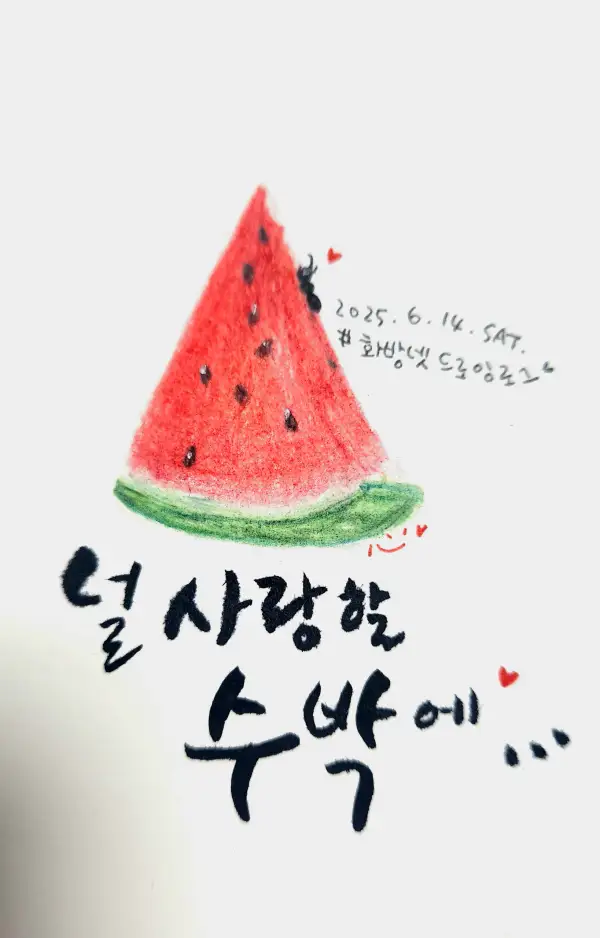 2025.6.14.SAT.
#화방넷 드로잉로그
널 사랑할
수박에...